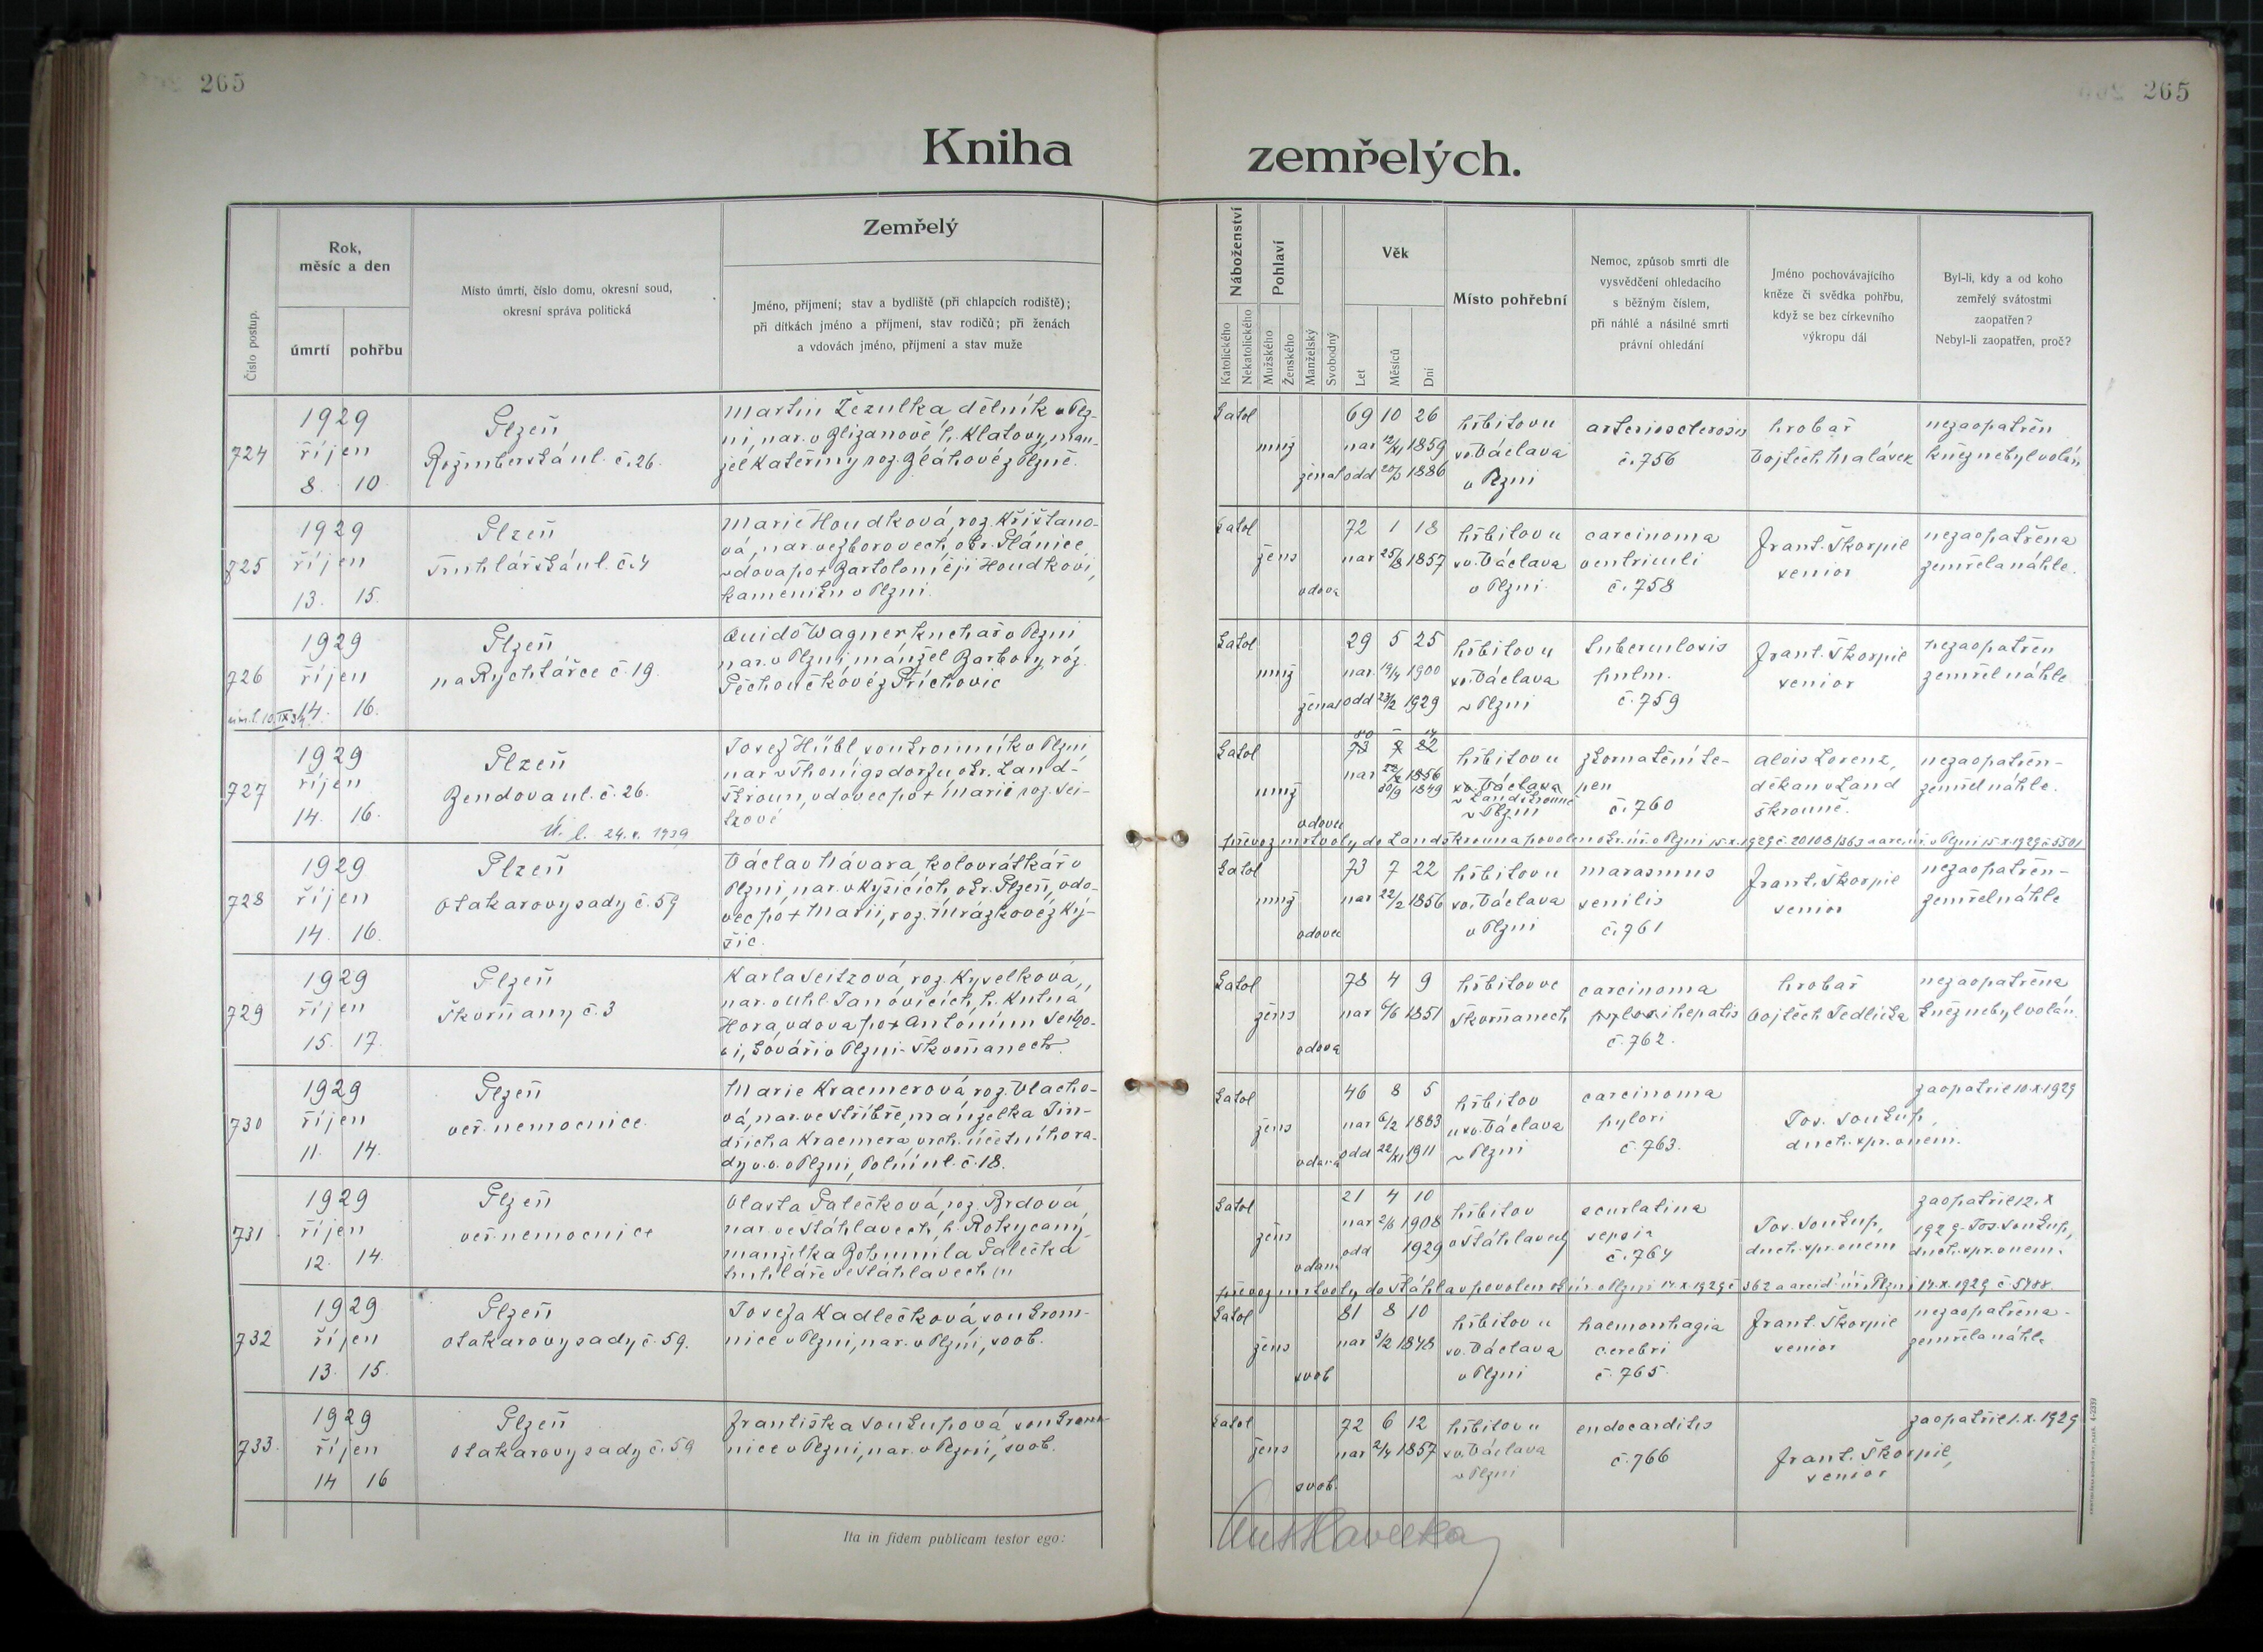 265
265
Kniha
zemřelých.
Číslo postup.
Rok,
měsíc a den
úmrtí
pohřbu
Místo úmrtí, číslo domu, okresní soud,
okresní správa politická
Zemřelý
Jméno, přijmení; stav a bydliště (při chlapcích rodiště);
při dítkách jméno a příjmení, stav rodičů; při ženách
a vdovách jméno, přijmení a stav muže
Náboženství
Katolického
Nekatolického
Pohlaví
Mužského
Ženského
Manželský
Svobodný
Věk
Let
Měsíců
Dní
Místo pohřební
Nemoc, způsob smrti dle
vysvědčení ohledacího
s běžným číslem,
při náhlé a násilné smrti
právní ohledání
Jméno pochovávajícího
kněze či svědka pohřbu,
když se bez církevního
výkropu dál
Byl-li, kdy a od koho
zemřelý svátostmi
zaopatřen?
Nebyl-li zaopatřen, proč?
724
1929
říjen
8. 10
Plzeň
Rožmberská ul. č. 26.
Martin Žezulka dělník v Plz-
ni, nar. v Blizanově h. Klatovy, man-
žel Kateřiny roz. Bláhové z Plzně.
katol
muž
ženat
69 10 26
nar 12/XI 1859
odd 20/3 1886
hřbitov u
sv. Václava
v Plzni
arteriosclerosis
č. 756
hrobař
Vojtěch Malávek
nezaopatřen
kněz nebyl volán
725
1929
říjen
13. 15.
Plzeň
Truhlářská ul. č. 4
Marie Houdková, roz. Křišťano-
vá, nar. ve Zborovech, okr. Plánice
vdova po + Bartoloměji Houdkovi,
kameníku v Plzni.
katol
žens
vdova
72 1 18
nar 25/8 1857
hřbitov u
sv. Václava
v Plzni
carcinoma
ventriculi
č. 758
Frant. Škorpil
senior
nezaopatřena
zemřela náhle.
726
1929
říjen
14. 16.
Plzeň
na Rychtářce č. 19.
Quido Wagner kuchař v Plzni
nar. v Plzni, manžel Barbory roz.
Pěchoučkové z Příchovic
katol
muž
ženat
29 5 25
nar. 19/4 1900
odd 23/2 1929
hřbitov u
sv. Václava
v Plzni
tuberculosis
pulm.
č. 759
Frant. Škorpil
senior
nezaopatřen
zemřel náhle
727
1929
říjen
14. 16.
Plzeň
Bendova ul. č. 26.
Ú. l. 24.5. 1939
Josef Hübl soukromník v Plzni
nar. v Thonigsdorfu, okr. Land-
škroun, vdovec po + Marii roz. Sei-
katol
muž
vdovec
73 7 22
nar 22/2 1856
30/9 1849
hřbitov u
sv. Václava
v Landškrouně
v Plzni
zkornatění te-
pen
č. 760
Alois Lorenz,
děkan v Land
škrouně.
nezaopatřen-
zemřel náhle.
převoz mrtvoly do Landškrouna povolen okr. úř. v Plzni 15.X.1929 č. 20108/363 a arcid. úř. v Plzni 15.X.1929 č. 5501
728
1929
říjen
14. 16.
Plzeň
Otakarovy sady č. 59
Václav Návara, kolovrátkář v
Plzni, nar. v Kyšicích, okr. Plzeň, vdo-
vec po + Marii, roz. Mrázkové z Ky-
šic.
katol
muž
vdovec
73 7 22
nar 22/2 1856
hřbitov u
sv. Václava
v Plzni
marasmus
senilis
č. 761
Frant. Škorpil
senior
nezaopatřen-
zemřel náhle
729
1929
říjen
15. 17.
Plzeň
Škvrňany č. 3
Karla Seitzová, roz. Kyselková,
nar. v Uhl. Janovicích, h. Kutná
Hora, vdova po + Antonínu Seitzo-
vi, kováři v Plzni-Škvrňanech.
katol
žens
vdova
78 4 9
nar 6/6 1851
hřbitov ve
Škvrňanech
carcinoma
pylori hepatis
č. 762.
hrobař
Vojtěch Jedlička
nezaopatřena
kněz nebyl volán.
730
1929
říjen
11. 14.
Plzeň
veř. nemocnice.
Marie Kraemerová roz. Vlacho-
vá, nar. ve Stříbře, manželka Jin-
dřicha Kraemera, vrch. účetního ra-
dy v. v. v Plzni, Polní ul. č. 18.
katol
žens
vdaná
46 8 5
nar 6/2 1883
odd 22/XI 1911
hřbitov
u sv. Václava
v Plzni
carcinoma
pylori
č. 763.
zaopatřil 10.X.1929
Jos. Soukup,
duch. spr. v nem.
731
1929
říjen
12. 14.
Plzeň
veř. nemocnice
Vlasta Palečková, roz. Brdová,
nar. ve Šťáhlavech, h. Rokycany
manželka Bohumila Palečka
truhláře ve Šťáhlavech
katol
žens
vdaná
21 4 10
nar 2/6 1908
odd 1929
hřbitov
v Šťáhlavech
scarlatina
sepsis
č. 764
Jos. Soukup,
duch. spr. v nem
zaopatřil 12.X
1929. Jos. Soukup,
duch. spr. v nem.
převoz mrtvoly do Šťáhlav povolen ok. úř. v Plzni 14.X.1929 č. 362 a arcid. úř. Plzni 14.X.1929 č. 5488.
732
1929
říjen
13. 15.
Plzeň
Otakarovy sady č. 59.
Josefa Kadlečková, soukrom-
nice v Plzni, nar. v Plzni, svob.
katol
žens
svob
81 8 10
nar 3/2 1848
hřbitov u
sv. Václava
v Plzni
haemorrhagia
cerebri
č. 765.
Frant. Škorpil
senior
nezaopatřena-
zemřela náhle
733.
1929
říjen
14 16
Plzeň
Otakarovy sady č. 59
Františka Soukupová, soukrom-
nice v Plzni, nar. v Plzni, svob.
katol
žens
svob.
72 6 12
nar 2/4 1857
hřbitov u
sv. Václava
v Plzni
endocarditis
č. 766
zaopatřil 1.X.1929
Frant. Škorpil,
senior
Ita in fidem publicam testor ego: